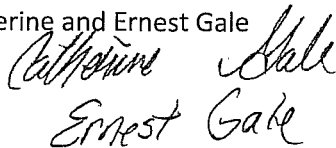 erine and Ernest Gale
Catherine Gale
Ernest Gale